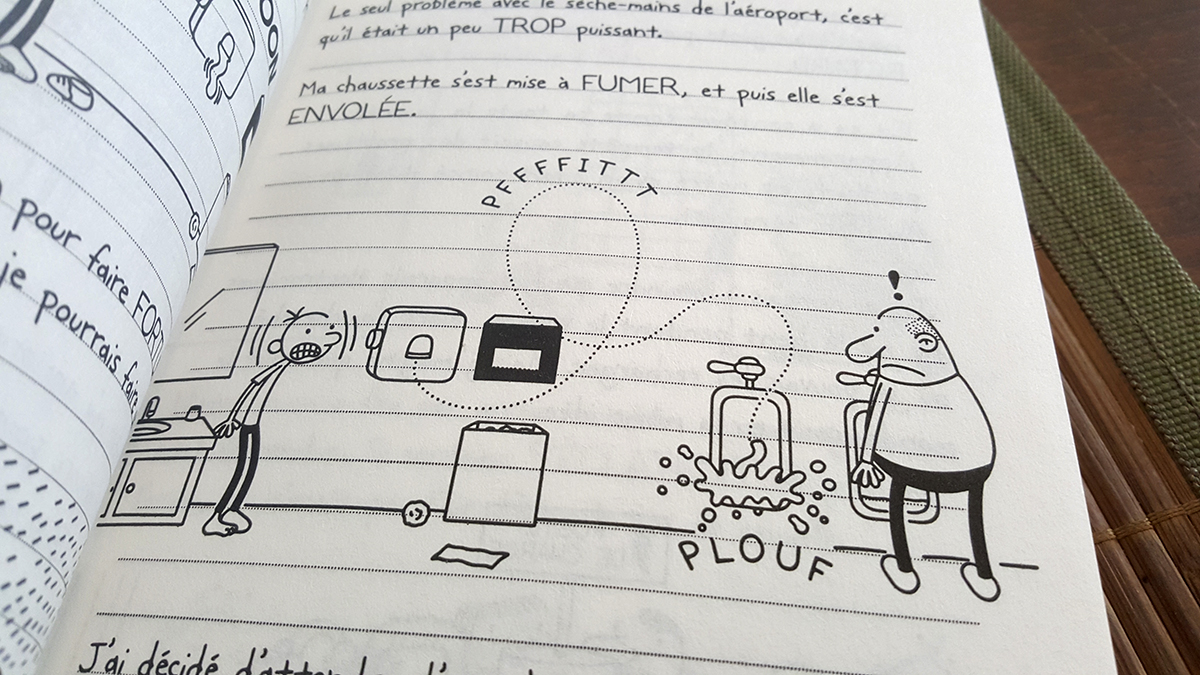 OON
pour faire
je pourrais faire
Le seul problème avec le sèche-mains de l'aéroport, c'est
qu'il était un peu TROP puissant.
Ma chaussette s'est mise à FUMER, et puis elle s'est
ENVOLÉE.
PFFFFITTT
!
PLOUF
J'ai décidé